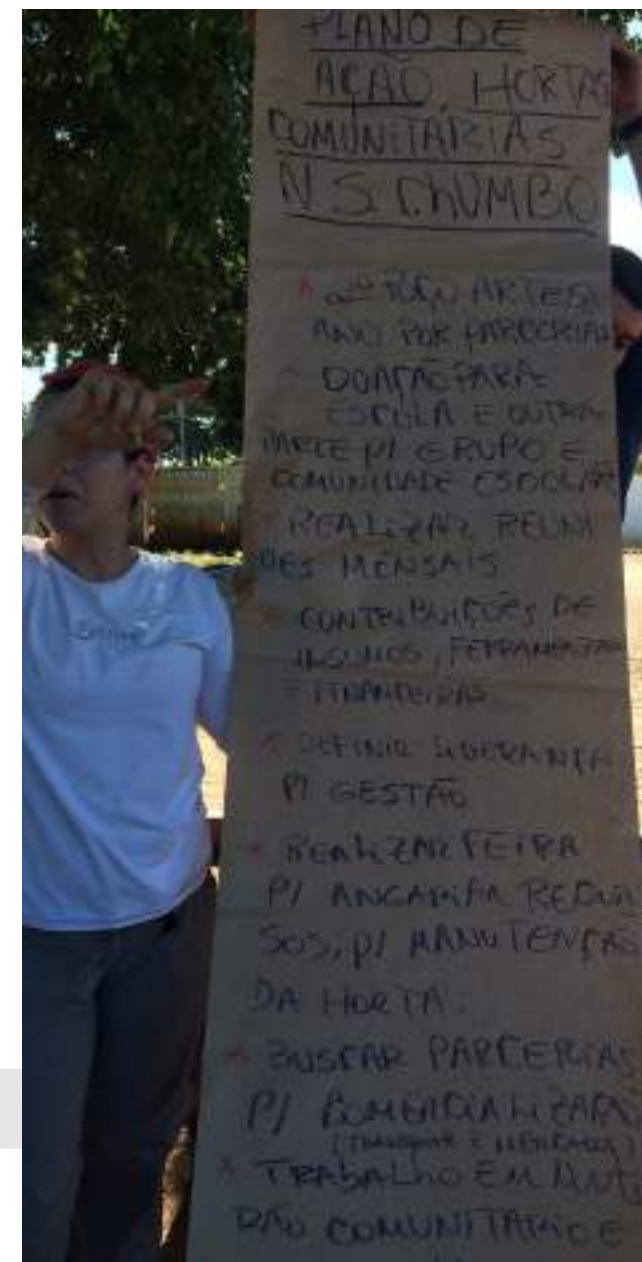 PLANO DE
AÇÃO. HORTAS
COMUNITÁRIAS
N. S. ChUMBO
POÇO ARTESI
ANO POR PARCERIAS
DOAÇÃO PARA
ESCOLA E OUTRA
PARTE P/ GRUPO E
COMUNIDADE ESCOLAR
REALIZAR REUNI
ÕES MENSAIS
CONTRIBUIÇÕES DE
INSUMOS, FERRAMENTAS
E FINANCEIRAS
DEFINIR LIDERANÇA
P/ GESTÃO
REALIZAR FEIRA
P/ ANGARIAR RECUR
SOS, P/ MANUTENÇÃO
DA HORTA.
BUSCAR PARCERIAS
P/ COMERCIALIZAÇÃO
TRABALHO EM MUTI
RÃO COMUNITÁRIO E